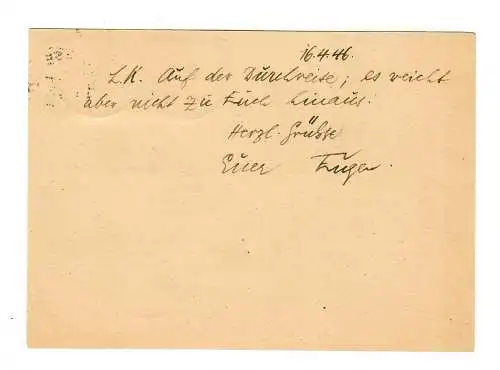 16.4.46.
L.K. Auf der Durchreise; es reicht
aber nicht zu Euch hinaus.
Herzl. Grüße
Euer